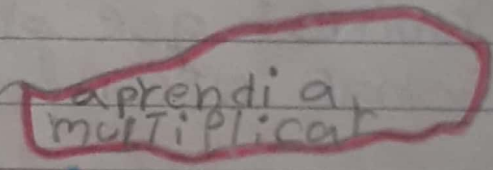 aprendi a
mulTiplicar